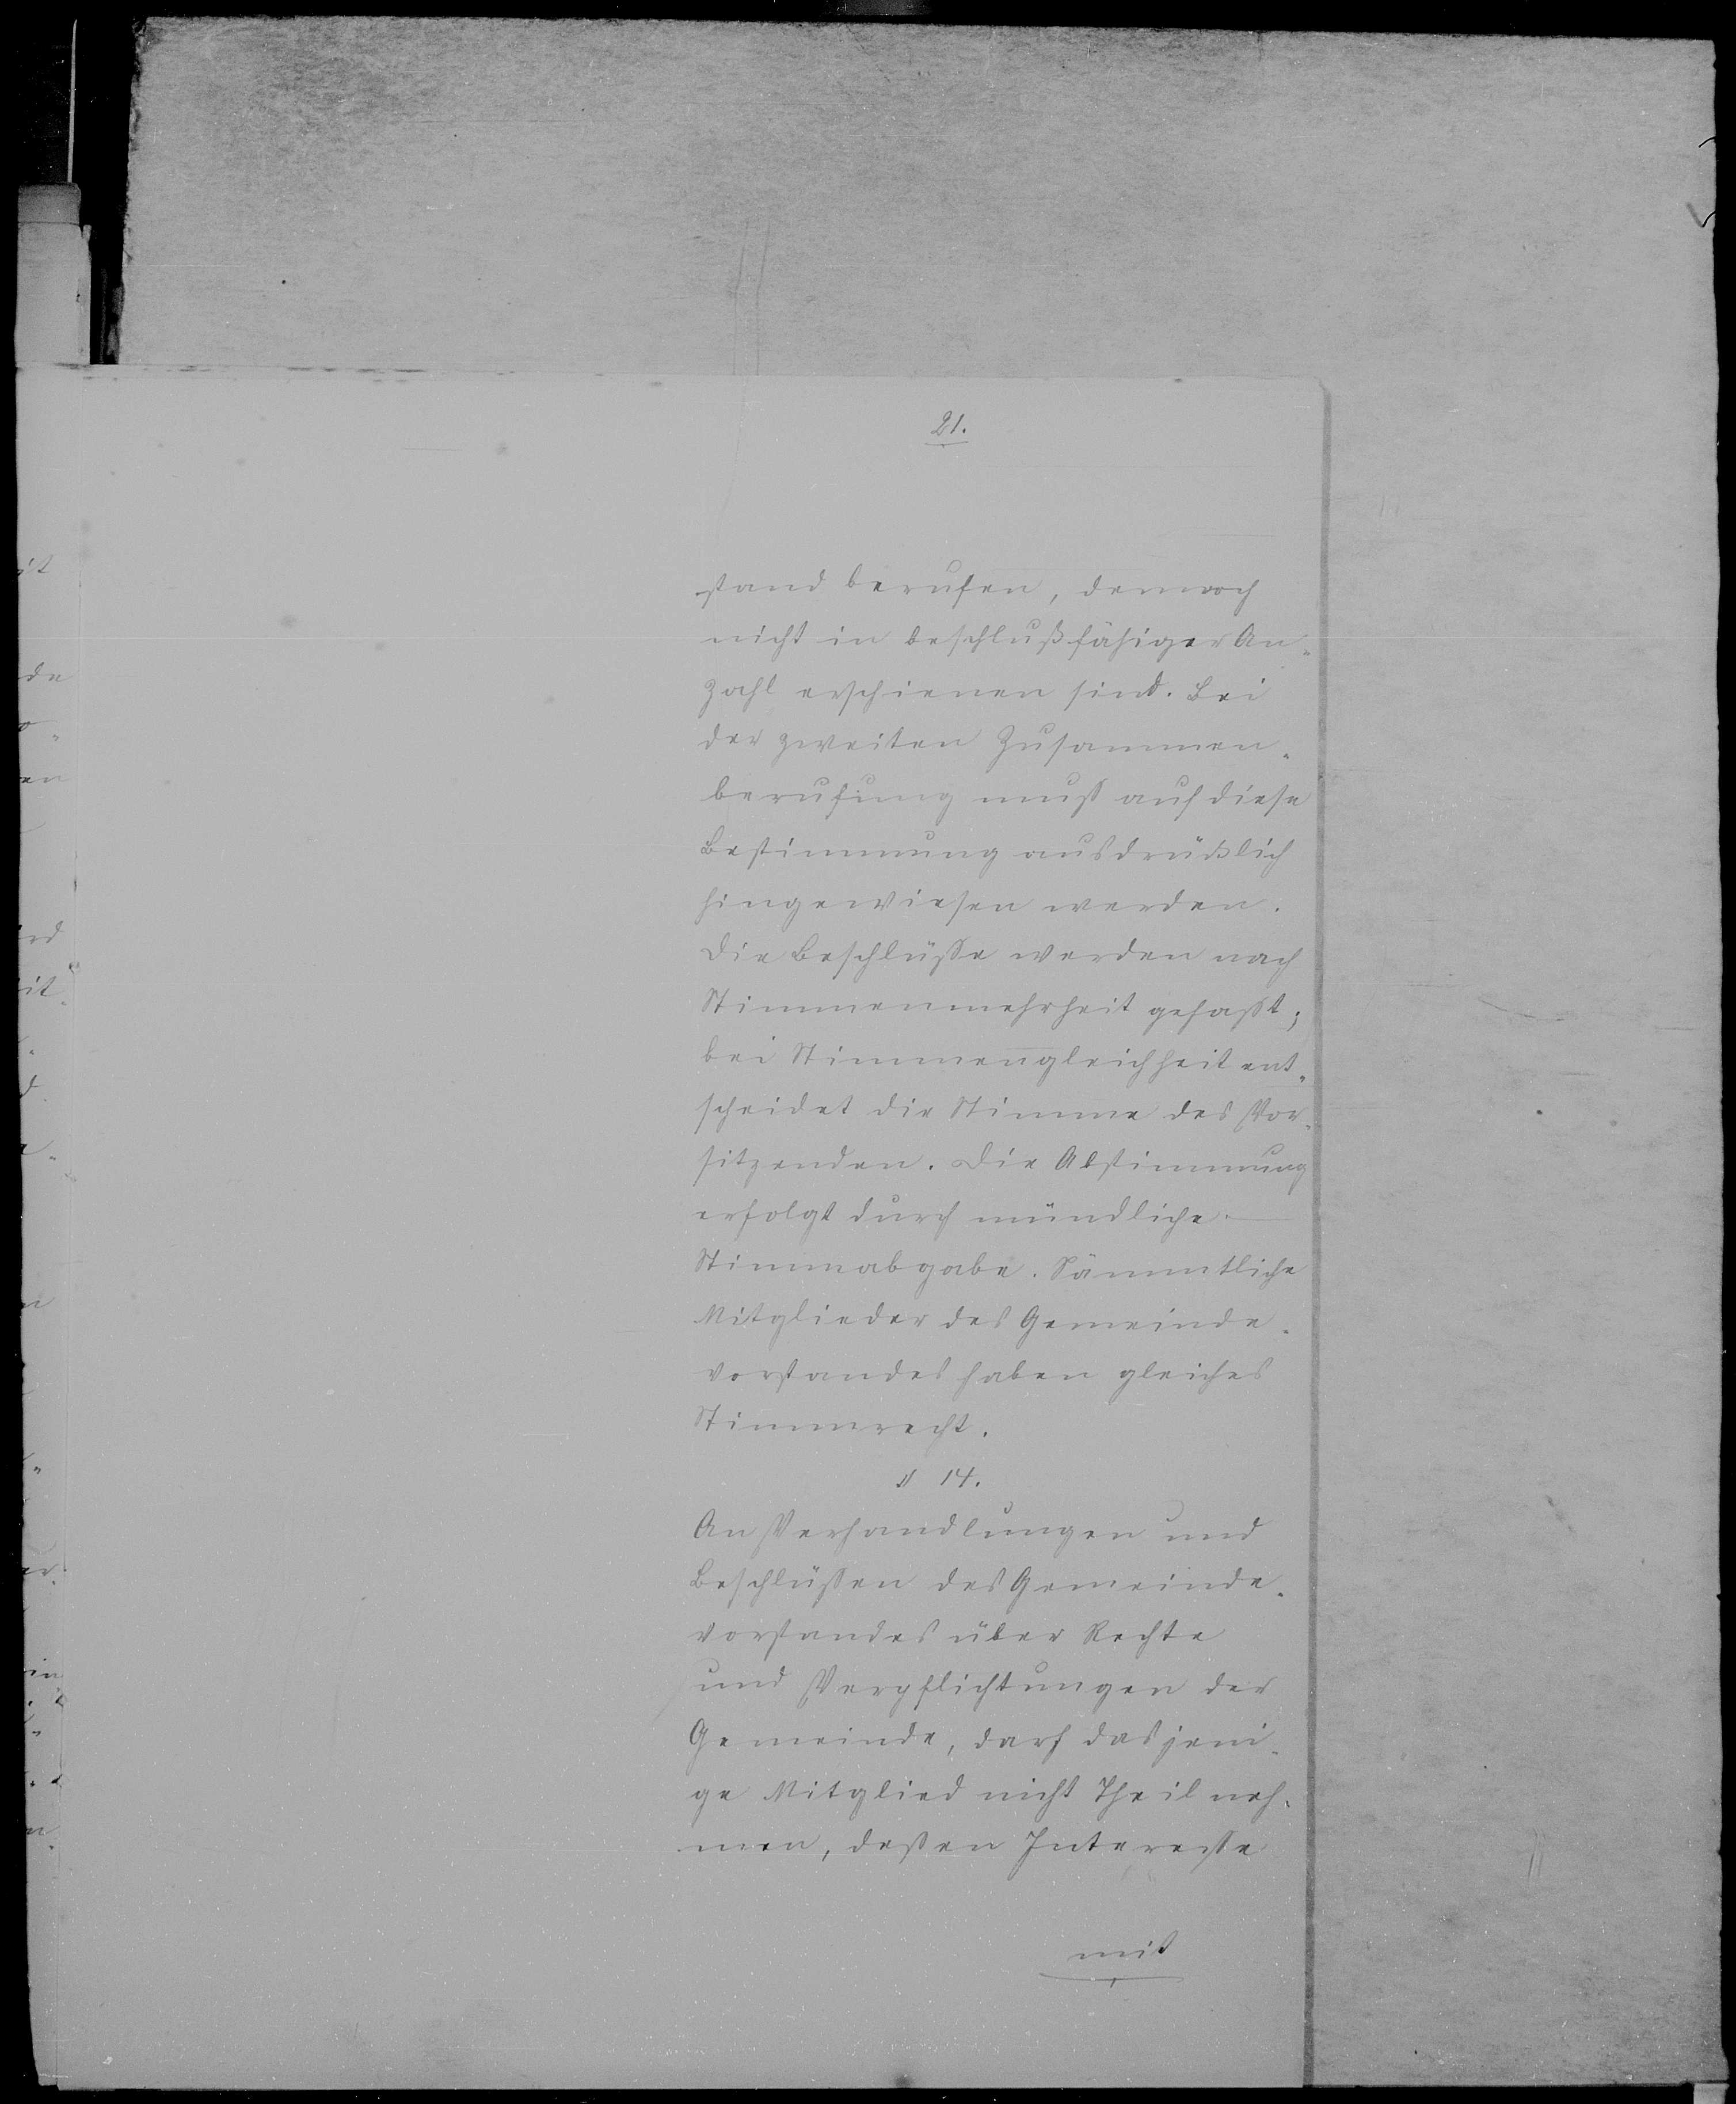 21.
stand berufen, dennoch
nicht in beschlußfähiger An-
zahl erschienen sind. Bei
der zweiten Zusammen-
berufung muß auf diese
Bestimmung ausdrücklich
hingewiesen werden.
Die Beschlüsse werden nach
Stimmenmehrheit gefaßt;
bei Stimmengleichheit ent-
scheidet die Stimme des Vor-
sitzenden. Die Abstimmung
erfolgt durch mündliche
Stimmabgabe. Sämmtliche
Mitglieder des Gemeinde-
vorstandes haben gleiches
Stimmrecht.
§ 14.
An Verhandlungen und
Beschlüssen des Gemeinde-
vorstandes über Rechte
und Verpflichtungen der
Gemeinde, darf dasjeni-
ge Mitglied nicht Theil neh-
men, dessen Interesse
mit